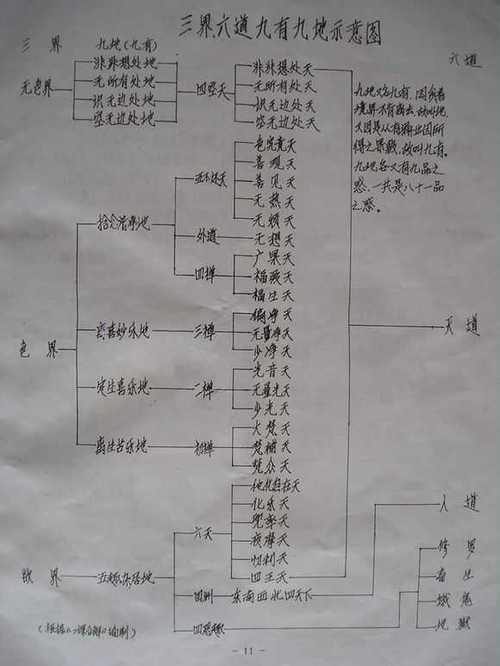 三界六道九有九地示意图
三 界 九地(九有) 六道
非非想处地 非非想处天
无色界 无所有处地 四空天 无所有处天
识无边处地 识无边处天
空无边处地 空无边处天
九地又名九有,因众生
境界不有
又因是从有漏业因所
得之果报,故叫九有。
九地各又有九品之
惑,一共是八十一品
之惑。
色究竟天
善现天
五不还天 善见天
无热天
舍念清净地 无烦天
外道 无想天
广果天
四禅 福爱天
福生天
遍净天
离喜妙乐地 三禅 无量净天
少净天
天道
色 界
光音天
定生喜乐地 二禅 无量光天
少光天
大梵天
离生喜乐地 初禅 梵辅天
梵众天
他化自在天
化乐天
六天 兜率天
夜摩天
忉利天
四王天
人道
欲 界 五趣杂居地
四洲 东南西北四天下
四恶趣
修罗
畜生
饿鬼
地狱
- 11 -